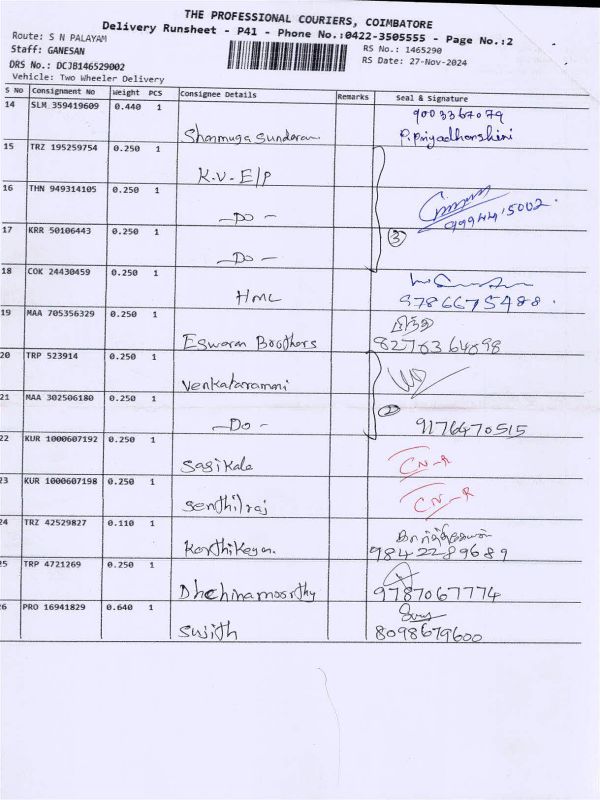 THE PROFESSIONAL COURIERS, COIMBATORE
Delivery Runsheet - P41 - Phone No.:0422-3505555 - Page No.:2
Route: S N PALAYAM
RS No.: 1465290
Staff: GANESAN
RS Date: 27-Nov-2024
DRS No.: DCJB146529002
Vehicle: Two Wheeler Delivery
S No Consignment No Weight PCS Consignee Details Remarks Seal & Signature
14 SLM 359419609 0.440 1 9003367079
Shanmuga Sundaram P.Priyadharshini
15 TRZ 195259754 0.250 1
K.V. E/P
16 THN 949314105 0.250 1
-Do- 9994415002.
17 KRR 50106443 0.250 1 3
-Do-
18 COK 24430459 0.250 1
HMC 9786675488.
19 MAA 705356329 0.250 1
Eswaran Brothers 8278364898
20 TRP 523914 0.250 1
Venkataramani
21 MAA 302506180 0.250 1 2
-Do- 9176470515
22 KUR 1000607192 0.250 1
Sasikala CN-R
23 KUR 1000607198 0.250 1
Senthilraj CN-R
24 TRZ 42529827 0.110 1
Karthikeyan. 9842289689
25 TRP 4721269 0.250 1
Dhchinamoorthy 9787067774
26 PRO 16941829 0.640 1
Sujith 8098679600